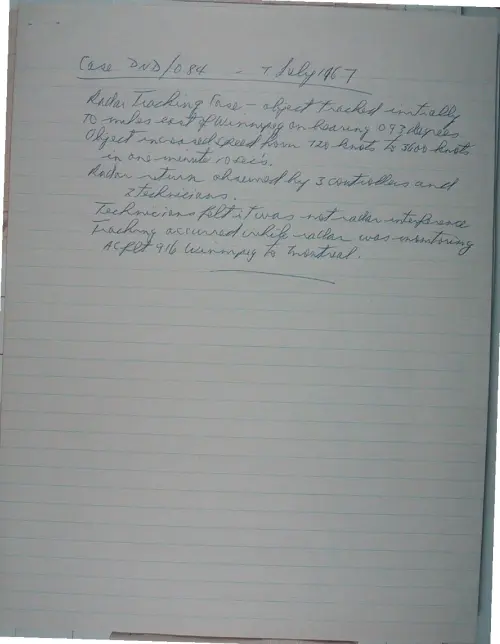 Case DND/084 - 7 July 1967
Radar Tracking Case - object tracked initially
70 miles east of Winnipeg on bearing 093 degrees
Object increased speed from 720 knots to 3600 knots
in one minute 10 secs.
Radar return observed by 3 controllers and
2 technicians.
Technicians felt it was not radar interference
Tracking occurred while radar was monitoring
AC flt 916 Winnipeg to Montreal.